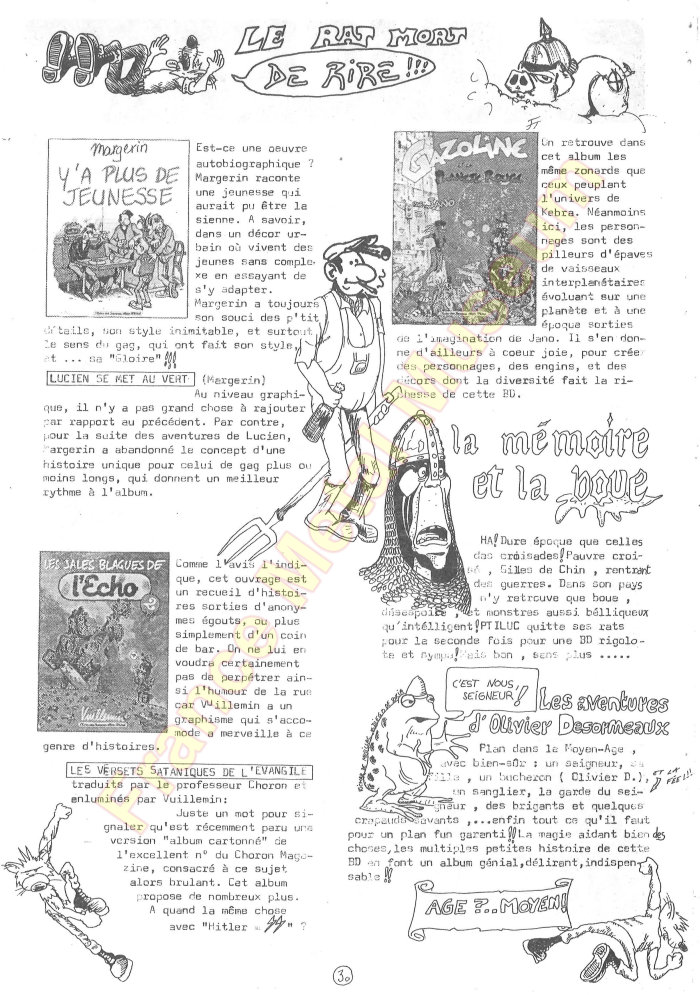 LE RAT MORT
DE RIRE!!!
Margerin
Y'A PLUS DE
JEUNESSE
Est-ce une oeuvre
autobiographique ?
Margerin raconte
une jeunesse qui
aurait pu être la
sienne. A savoir,
dans un décor ur-
bain où vivent des
jeunes sans comple-
xe en essayant de
s'y adapter.
Margerin a toujours
son souci des p'tit
détails, son style inimitable, et surtout
le sens du gag, qui ont fait son style,
et ... sa "Gloire" !!!
LUCIEN SE MET AU VERT (Margerin)
Au niveau graphi-
que, il n'y a pas grand chose à rajouter
par rapport au précédent. Par contre,
pour la suite des aventures de Lucien,
Margerin a abandonné le concept d'une
histoire unique pour celui de gag plus ou
moins longs, qui donnent un meilleur
rythme à l'album.
LES SALES BLAGUES DE
l'Echo
2
Vuillemin
Comme l'avis l'indi-
que, cet ouvrage est
un recueil d'histoi-
res sorties d'anony-
mes égouts, ou plus
simplement d'un coin
de bar. On ne lui en
voudra certainement
pas de perpétrer ain-
si l'humour de la rue
car Vuillemin a un
graphisme qui s'acco-
mode a merveille à ce
genre d'histoires.
LES VERSETS SATANIQUES DE L'EVANGILE
traduits par le professeur Choron et
enluminés par Vuillemin:
Juste un mot pour si-
gnaler qu'est récemment paru une
version "album cartonné" de
l'excellent n° du Choron Maga-
zine, consacré à ce sujet
alors brulant. Cet album
propose de nombreux plus.
A quand la même chose
avec "Hitler = " ?
GAZOLINE
PLANETE ROUGE
JANO
On retrouve dans
cet album les
même zonards que
ceux peuplant
l'univers de
Kebra. Néanmoins
ici, les person-
nages sont des
pilleurs d'épaves
de vaisseaux
interplanétaires
évoluant sur une
planète et à une
époque sorties
de l'imagination de Jano. Il s'en don-
ne d'ailleurs à coeur joie, pour créer
des personnages, des engins, et des
décors dont la diversité fait la ri-
chesse de cette BD.
la mémoire
et la boue
HA! Dure époque que celles
das croisades! Pauvre croi-
sé , Gilles de Chin , rentrant
des guerres. Dans son pays
n'y retrcuve que boue ,
désespoire , et monstres aussi bélliqueux
qu'intélligent! PTILUC quitte ses rats
pour la seconde fois pour une BD rigolo-
te et sympa! Mais bon , sans plus .....
C'EST NOUS,
SEIGNEUR!!
Les aventures
d'Olivier Desormeaux
Plan dans le Moyen-Age ,
avec bien-sûr : un seigneur, sa
fille , un bucheron ( Olivier D.),
ET LA FÉE!!!
un sanglier, la garde du sei-
gneur , des brigants et quelques
crapauds savants ,...enfin tout ce qu'il faut
pour un plan fun garanti!! La magie aidant bien des
choses,les multiples petites histoire de cette
BD en font un album génial,délirant,indispen-
sable !!
AGE ?.. MOYEN!
30
France Metal Museum